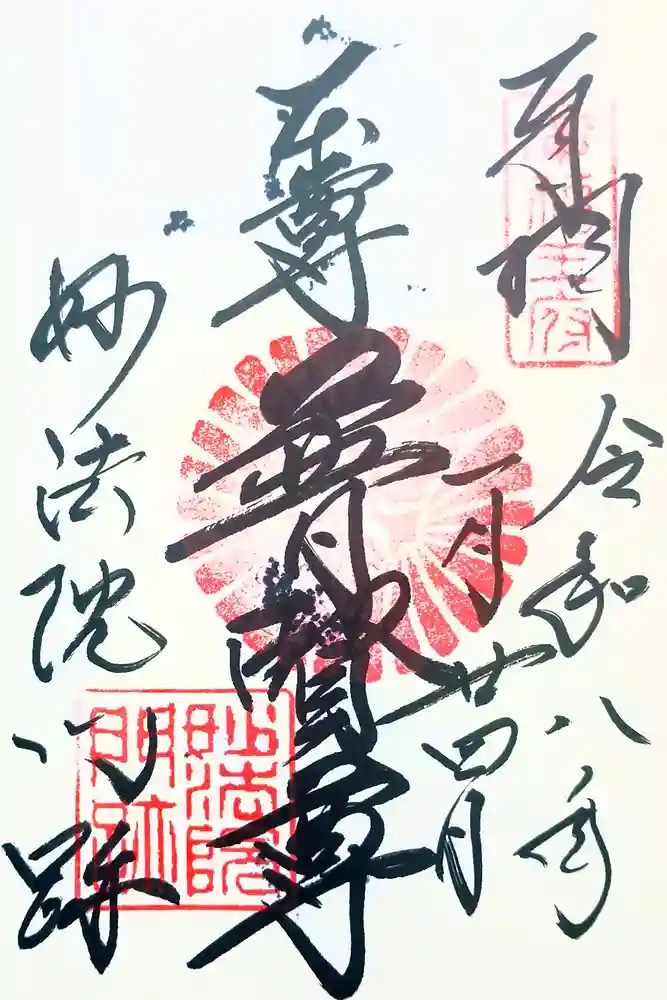 令和八年
一月廿四日
本尊
普賢尊
妙法院門跡
妙法院
門跡